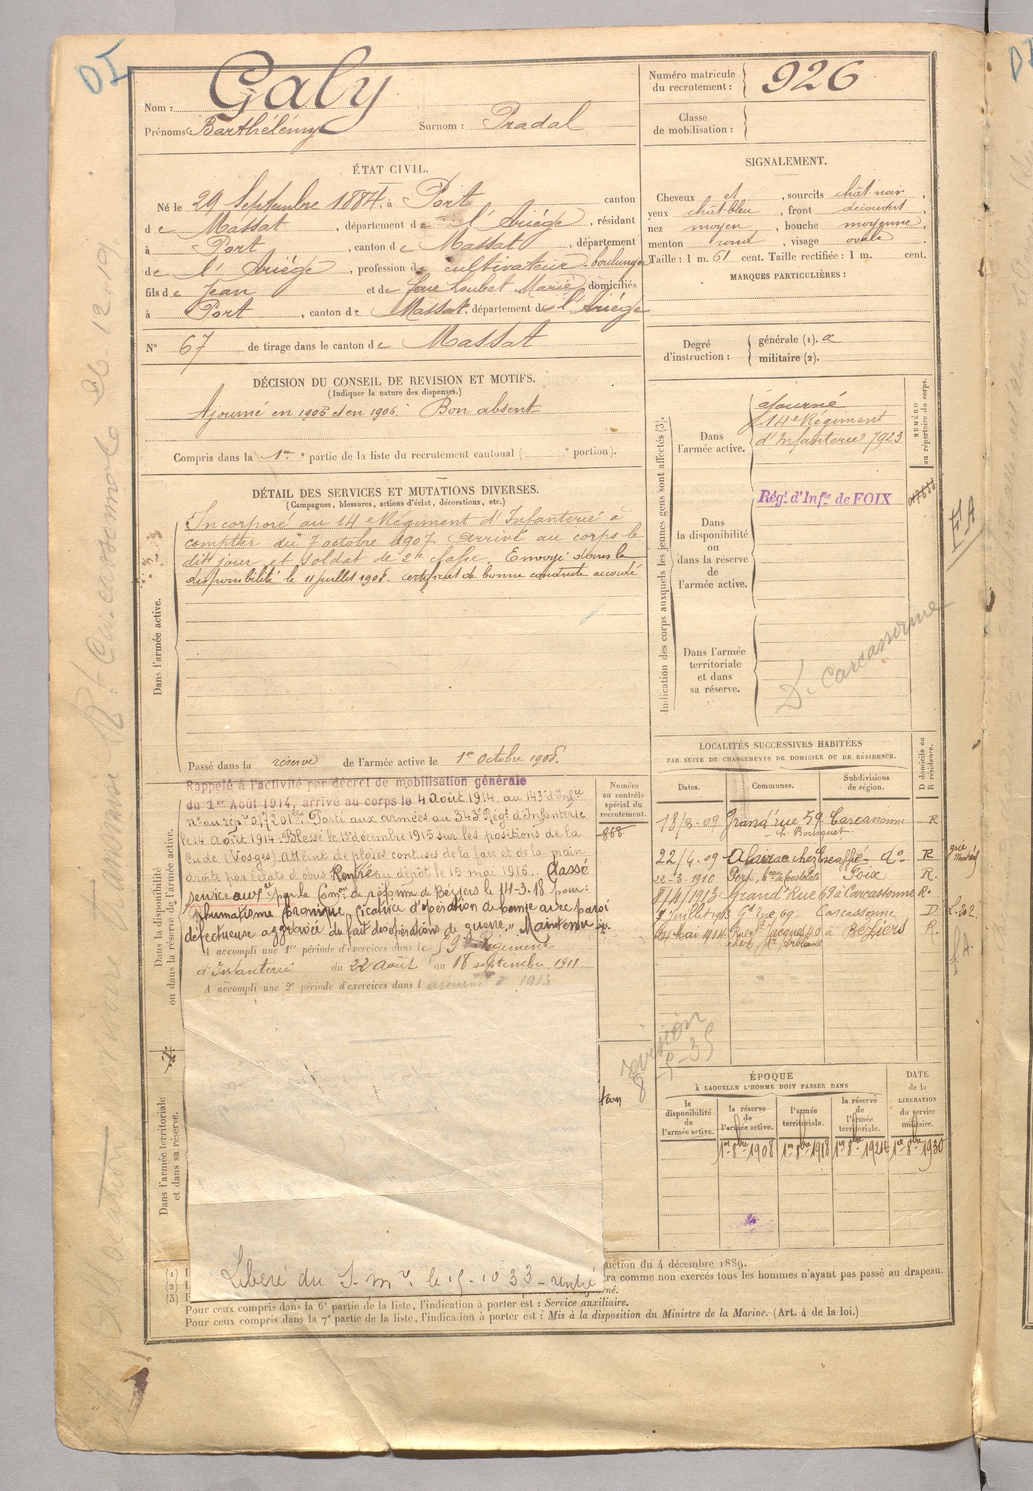 Nom : Galy
Prénoms : Barthélémy Surnom : Pradal
Numéro matricule du recrutement : 926
Classe de mobilisation :
ÉTAT CIVIL.
Né le 29 Septembre 1884, à Port canton
de Massat, département de l'Ariège, résidant
à Port, canton de Massat, département
de l'Ariège, profession de cultivateur boulanger
fils de Jean et de Loubet Marie domiciliés
à Port, canton de Massat, département de l'Ariège
N° 67 de tirage dans le canton de Massat
SIGNALEMENT.
Cheveux et, sourcils chât noir
yeux chât bleu, front découvert,
nez moyen, bouche moyenne,
menton rond, visage ovale
Taille : 1 m. 61 cent. Taille rectifiée : 1 m. cent.
MARQUES PARTICULIÈRES :
Degré d'instruction : générale (1).
militaire (2).
DÉCISION DU CONSEIL DE REVISION ET MOTIFS.
(Indiquer la nature des dispenses.)
Ajourné en 1905 et en 1906. Bon absent
Compris dans la 1re partie de la liste du recrutement cantonal ( e portion).
DÉTAIL DES SERVICES ET MUTATIONS DIVERSES.
(Campagnes, blessures, actions d'éclat, décorations, etc.)
Dans l'armée active.
Incorporé au 14e Régiment d'Infanterie à
compter du 7 octobre 1907 arrivé au corps le
dit jour et soldat de 2e classe. Envoyé dans la
disponibilité le 11 juillet 1908. certificat de bonne conduite accordé
Passé dans la réserve de l'armée active le 1er Octobre 1908.
Indication des corps auxquels les jeunes gens sont affectés (3).
NUMÉRO au répertoire du corps.
Dans l'armée active.
ajourné
14e Régiment
d'Infanterie 7923
Régt d'Infie de FOIX
Dans la disponibilité ou dans la réserve de l'armée active.
Dans l'armée territoriale et dans sa réserve.
Dt Carcassonne
Dans la disponibilité ou dans la réserve de l'armée active.
Rappelé à l'activité par décret de mobilisation générale
du 1er Août 1914, arrivé au corps le 4 août 1914, au 143e d'Infie
Parti aux armées au 343e Régt d'Infanterie
le 14 Août 1914. Blessé le 1er décembre 1915 sur les positions de la
Cude (Vosges) Atteint de plaies contuses de la face et de la main
droite par éclats d'obus. Rentré au dépôt le 15 mai 1916. Classé
service auxre par la Comon de réforme de Béziers le 14-3-18 pour :
"Rhumatisme chronique, cicatrice d'opération de hernie avec paroi
défectueuse aggravée du fait des opérations de guerre." Maintenu
A accompli une 1re période d'exercices dans le 59e Régiment
d'Infanterie du 22 Août au 18 septembre 1911
A accompli une 2e période d'exercices dans l ajourné à 1913
Numéro au contrôle spécial du recrutement.
868
LOCALITÉS SUCCESSIVES HABITÉES
PAR SUITE DE CHANGEMENTS DE DOMICILE OU DE RÉSIDENCE.
Dates. Communes. Subdivisions de région. D domicile ou R résidence.
18/3-09 Grand'rue 59 Carcassonne R
22/4-09 chez do R
22-3-1910 Foix R.
8/4/1913 Grand Rue 69 à Carcassonne R.
juillet 1913 Gde Rue 69. Carcassonne D
24 Mai 1914 Rue St Jacques 40 à Béziers R.
revision
ÉPOQUE
À LAQUELLE L'HOMME DOIT PASSER DANS
la disponibilité de l'armée active. la réserve de l'armée active. l'armée territoriale. la réserve de l'armée territoriale.
DATE de la LIBÉRATION du service militaire.
1er 8bre 1908 1er 8bre 1918 1er 8bre 1924 1er 8bre 1930
Dans l'armée territoriale et dans sa réserve.
Libéré du S. mre le 15-10 33 - rentré
uction du 4 décembre 1889.
ra comme non exercés tous les hommes n'ayant pas passé au drapeau.
Pour ceux compris dans la 6e partie de la liste, l'indication à porter est : Service auxiliaire.
Pour ceux compris dans la 7e partie de la liste, l'indication à porter est : Mis à la disposition du Ministre de la Marine. (Art. 4 de la loi.)